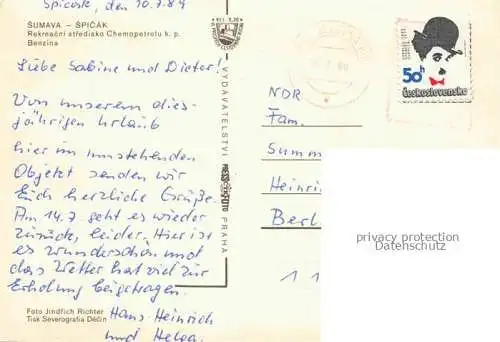 Špičák, den 10.7.89
ŠUMAVA – ŠPIČÁK
Rekreační středisko Chemopetrolu k. p.
Benzina
Liebe Sabine und Dieter!
Von unserem dies-
jährigen Urlaub
hier im umstehenden
Objekt senden wir
Euch herzliche Grüße.
Am 14.7 geht es wieder
zurück, leider. Hier ist
es wunderschön und
das Wetter hat viel zur
Erholung beigetragen.
Hans-Heinrich
und Helga
Foto Jindřich Richter
Tisk Severografia Děčín
VYDAVATELSTVÍ
PRESSFOTO
PRAHA
50h
Československo
NDR
Fam.
Summ
Heinri
Berl
1 1
privacy protection
Datenschutz